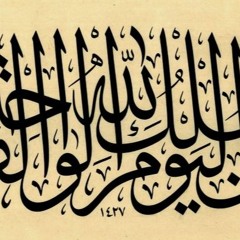 الملك اليوم لله الواحد
١٤٢٧